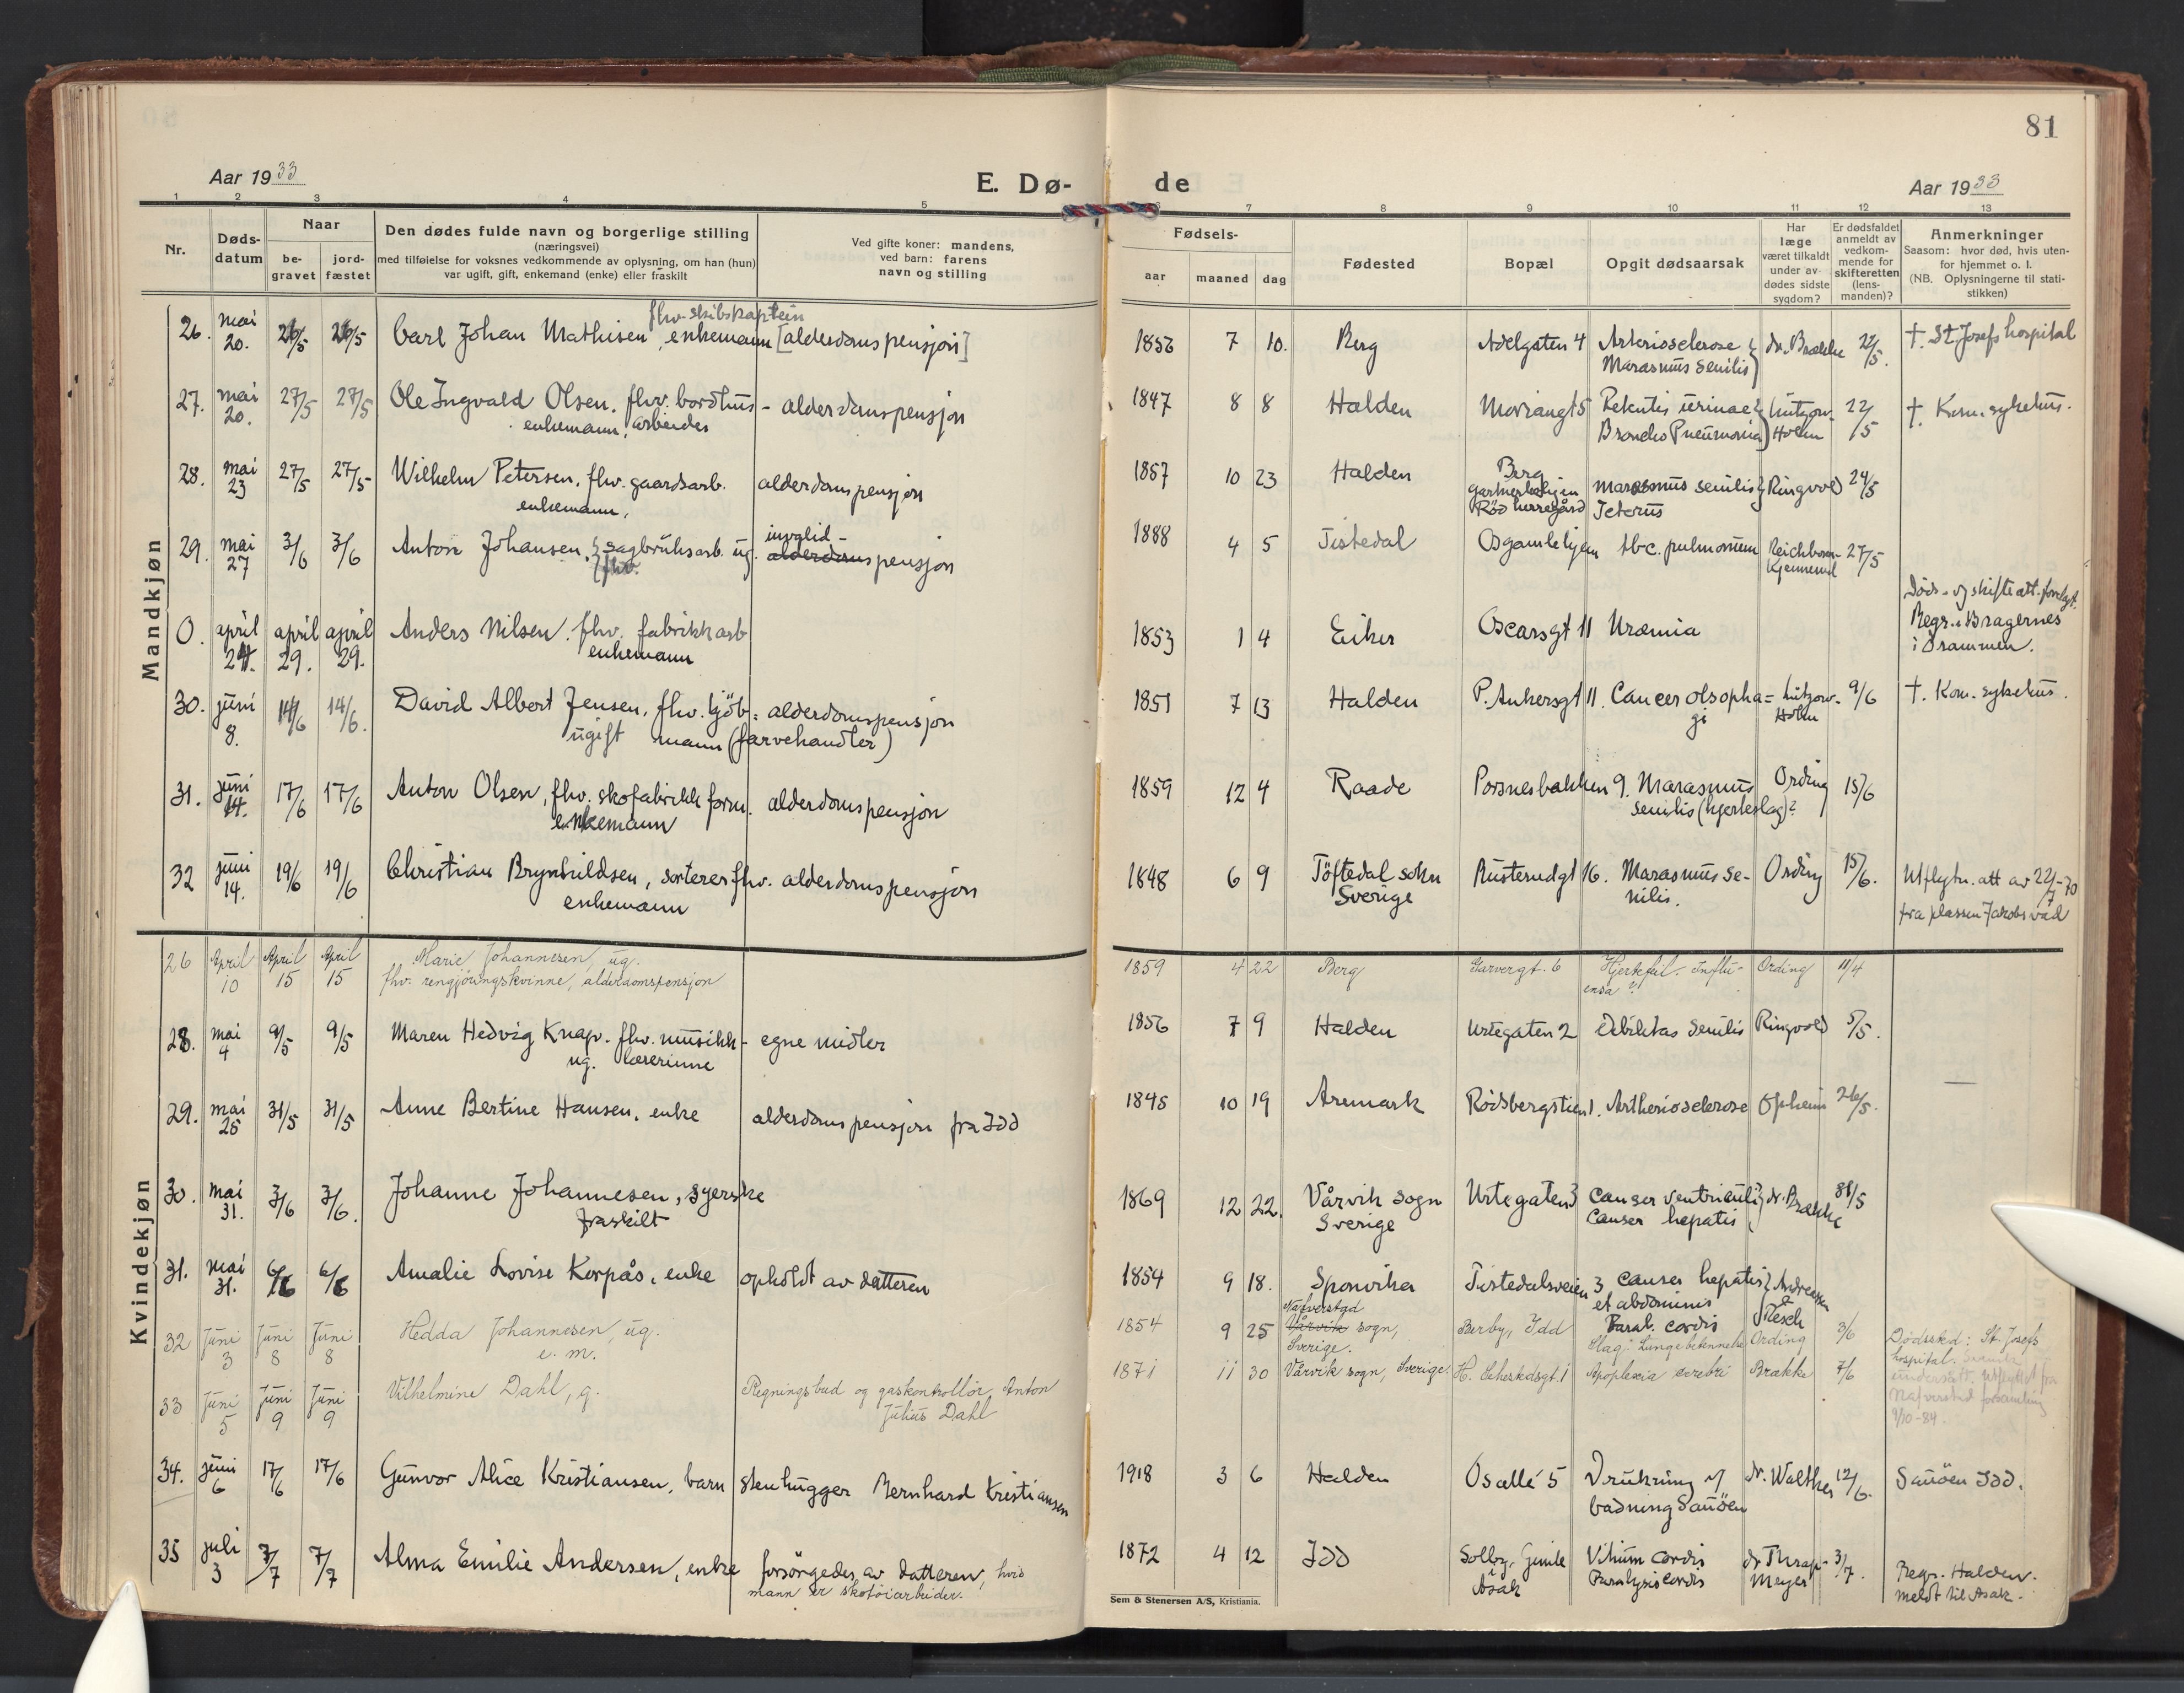 81
Aar 1933
E. Dø-
de
Aar 1933
1 2 3 4 5 6 7 8 9 10 11 12 13
Nr.
Døds-
datum
Naar
be-
gravet
jord-
fæstet
Den dødes fulde navn og borgerlige stilling
(næringsvei)
med tilføielse for voksnes vedkommende av oplysning, om han (hun)
var ugift, gift, enkemand (enke) eller fraskilt
Ved gifte koner: mandens,
ved barn: farens
navn og stilling
Fødsels-
aar maaned dag
Fødested
Bopæl
Opgit dødsaarsak
Har
læge
været tilkaldt
under av-
dødes sidste
sygdom?
Er dødsfaldet
anmeldt av
vedkom-
mende for
skifteretten
(lens-
manden)?
Anmerkninger
Saasom: hvor død, hvis uten-
for hjemmet o. l.
(NB. Oplysningerne til stati-
stikken)
Mandkjøn
fhv. skibskaptein
26. mai 20. 26/5 26/5 Carl Johan Mathisen, enkemann [alderdomspensjon] 7 10. Berg Adelgaten 4 Arteriosclerose dr. Brække 22/5. †. St. Josefs hospital
Marasmus senilis
27. mai 20. 27/5 27/5 Ole Ingvald Olsen. fhv. bordhus- alderdomspensjon 1847 8 8 Halden Retentis urinae Lützow- 22/5 †. Kom. sykehus.
enkemann, arbeider Broncho Pneumonia Holm
28. mai 23 27/5 27/5 Wilhelm Petersen. fhv. gaardsarb. alderdomspensjon 1857 10 23 Halden Berg marasmus senilis Ringvold 24/5
enkemann. Rød herregård
29. mai 27 3/6 3/6 Anton Johansen, sagbruksarb. ug. invalid- 1888 4 5 Tistedal tbc. pulmonum Reichborn- 27/5
fhv. alderdomspensjon Kjennerud
0. april 24. april 29. april 29. Anders Nilsen. fhv. fabrikkarb 1853 1 4 Eiker Oscarsgt 11 Uræmia Døds- og skifteatt. forelagt.
enkemann Regr. i Bragernes
i Drammen.
30. juni 8. 14/6 14/6. David Albert Jensen, fhv. kjöb- alderdomspensjon 1851 7 13 Halden P. Ankersgt 11. Cancer olsopha- Lützow- 9/6 †. Kom. sykehus.
ugift mann (farvehandler) gi Holm
31. juni 14. 17/6 17/6 Anton Olsen, fhv. skofabrikk form. alderdomspensjon 1859 12 4 Raade Porsnesbakken 9. Marasmus Ording 15/6
enkemann senilis (hjerteslag)?
32 juni 14. 19/6 19/6 Christian Brynhildsen, sorterer fhv. alderdomspensjon 1848 6 9 Töftedal sokn Rusterudgt 16. Marasmus se- Ording 15/6. Utflytn. att av 22/7-70
enkemann Sverige nilis. fra plassen Jakobsvad
Kvindekjøn
26 April 10 April 15 April 15 Marie Johannesen, ug. 1859 4 22 Berg Garvergt. 6 Hjertefeil - Influ- Ording 11/4
fhv. rengjöringskvinne, alderdomspensjon enza ?
28. mai 4 9/5 9/5 Maren Hedvig Knap. fhv. musikk- egne midler 1856 7 9 Halden Urtegaten 2 Debilitas senilis Ringvold 5/5.
ug. lærerinne
29. mai 26 31/5 31/5 Anne Bertine Hansen, enke alderdomspensjon fra Idd 1845 10 19 Aremark Rödsbergstien 1. Artheriosclerose Opheim 26/5.
30. mai 31. 3/6 3/6. Johanne Johannesen, syerske 1869 12 22. Vårvik sogn Urtegaten 3 Canser ventriculi dr. Brække 31/5
fraskilt Sverige Canser hepatis
31. mai 31. 6/6 6/6 Amalie Lovise Korpås, enke opholdt av datteren 1854 9 18. Sponvika Tistedalsveien 3 Canser hepatis Andreassen
et abdominis & Resch
Paral. cordis
32 Juni 3 Juni 8 Juni 8 Hedda Johannesen, ug. 1854 9 25 Nafverstad Vårvik sogn, Berby, Idd Slag. Lungebetennelse Ording 3/6 Dödssted: St. Josefs
e. m. Sverige. hospital.
33 Juni 5 Juni 9 Juni 9 Vilhelmine Dahl, g. Regningsbud og gaskontrollör Anton 1871 11 30 Vårvik sogn, Sverige Apoplexia cerebri Brække 7/6
Julius Dahl
Utflyttet fra
Nafverstad forsamling
9/10-84.
34. juni 6 17/6 17/6 Gunvor Alice Kristiansen, barn stenhugger Bernhard Kristiansen 1918 3 6 Halden Osallé 5 Drukning v/ dr. Walther 12/6. Sauöen Idd.
badning Sauöen
35 juli 3 7/7 7/7 Alma Emilie Andersen, enke forsörgedes av datteren, hvis 1872 4 12 Idd Solbg. Gimle Vitium cordis dr Thrap- 3/7. Regr. Halden.
mann er skotöiarbeider. Asak Paralysis cordis Meyer meldt til Asak.
Sem & Stenersen A/S, Kristiania.